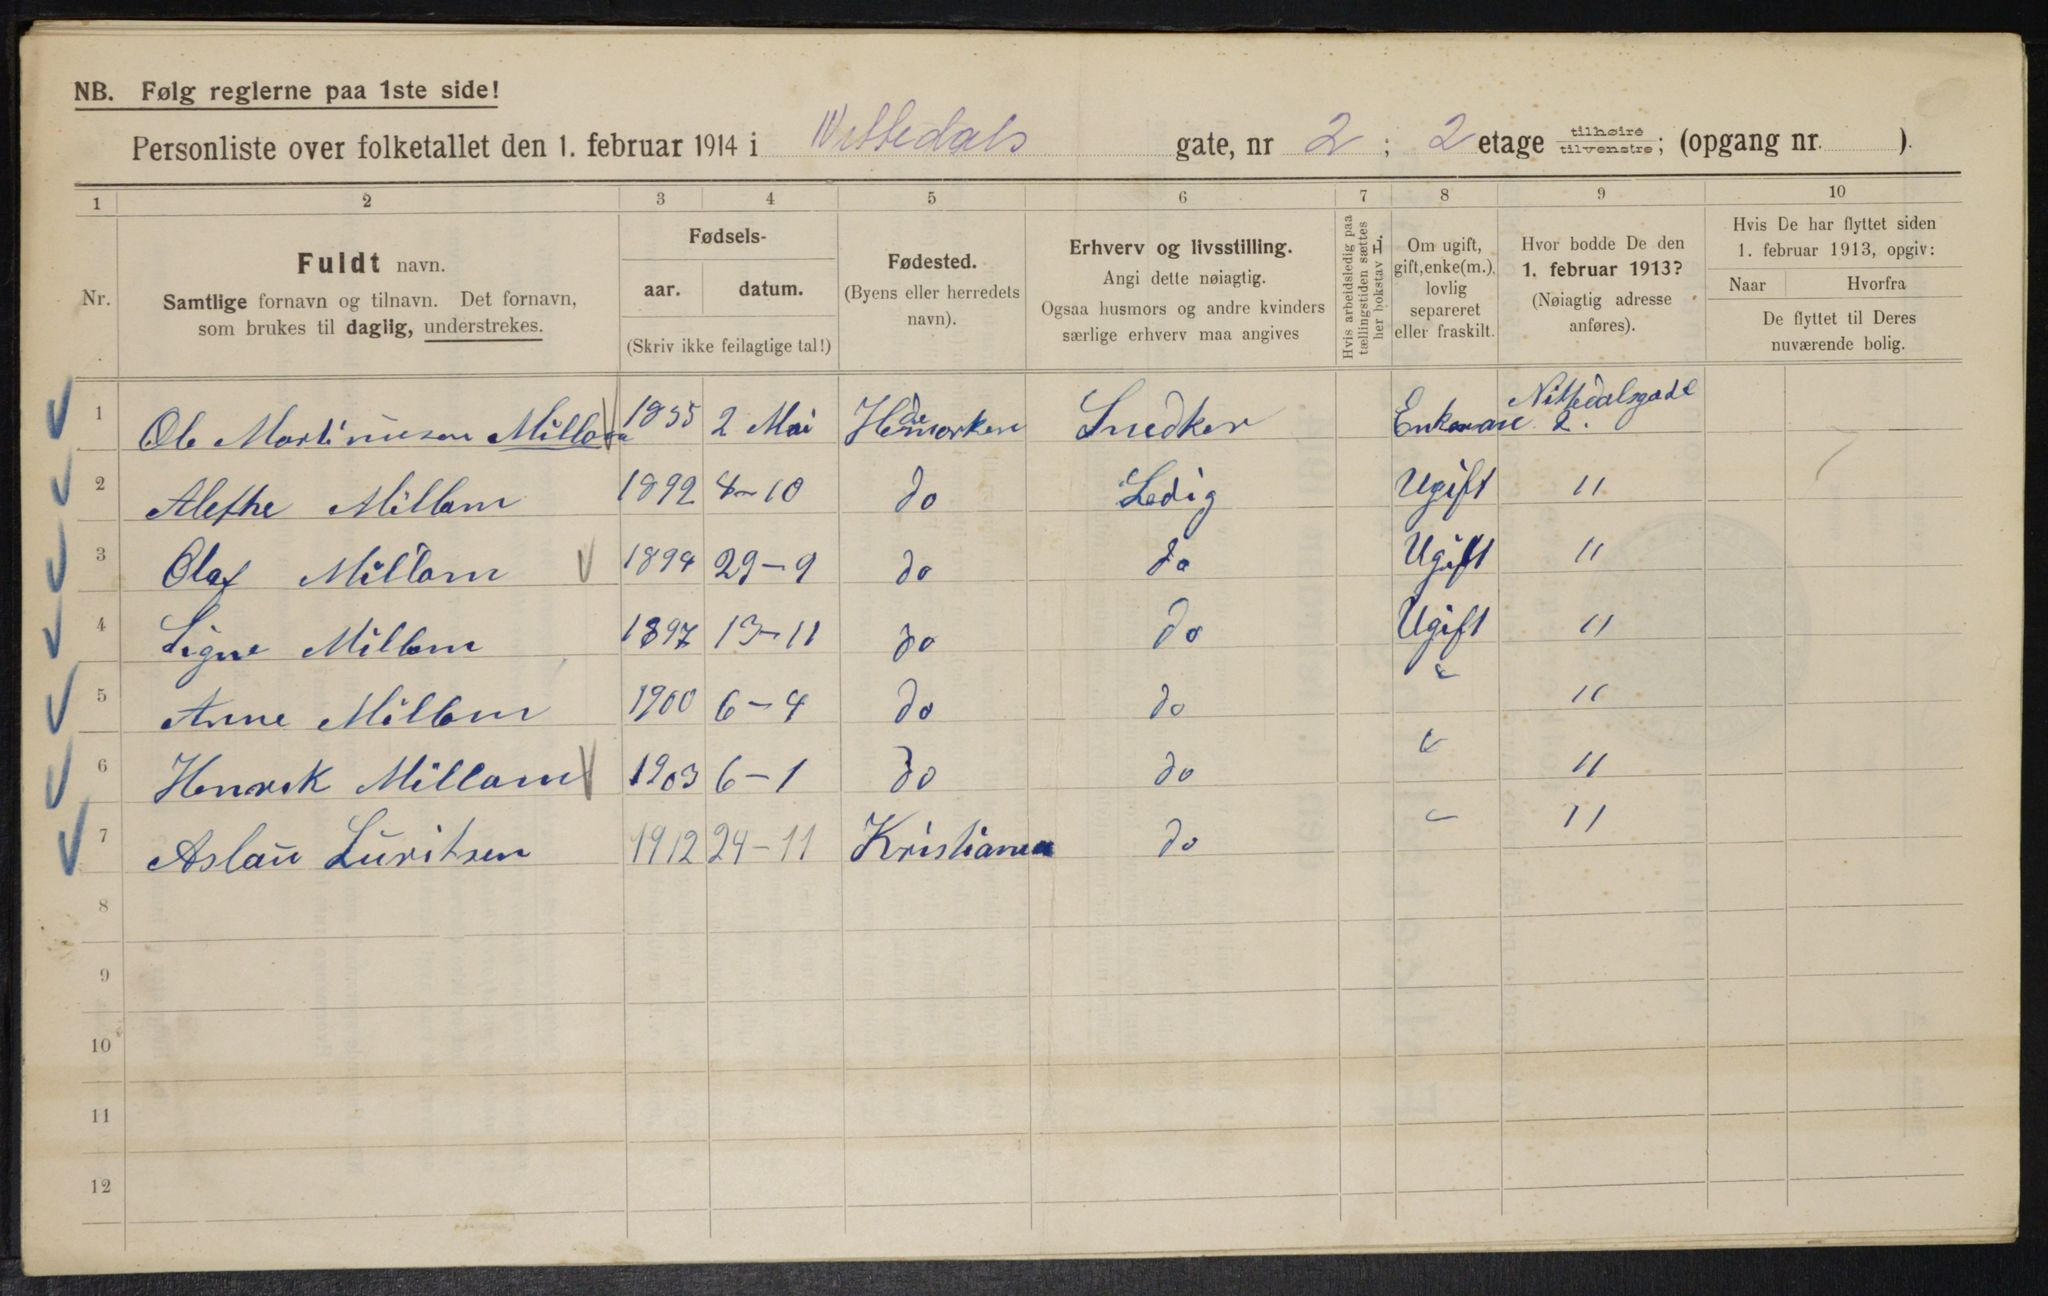 NB. Følg reglerne paa 1ste side!
Personliste over folketallet den 1. februar 1914 i Nittedals gate, nr 2 ; 2 etage tilhøire tilvenstre; (opgang nr. ).
1 2 3 4 5 6 7 8 9 10
Nr.
Fuldt navn.
Samtlige fornavn og tilnavn. Det fornavn,
som brukes til daglig, understrekes.
Fødsels-
aar. datum.
(Skriv ikke feilagtige tal!)
Fødested.
(Byens eller herredets
navn).
Erhverv og livsstilling.
Angi dette nøiagtig.
Ogsaa husmors og andre kvinders
særlige erhverv maa angives
Hvis arbeidsledig paa
tællingstiden sættes
her bokstav H.
Om ugift,
gift, enke(m.),
lovlig
separeret
eller fraskilt.
Hvor bodde De den
1. februar 1913?
(Nøiagtig adresse
anføres).
Hvis De har flyttet siden
1. februar 1913, opgiv:
Naar Hvorfra
De flyttet til Deres
nuværende bolig.
1 Ole Martinusen Millom 1855 2 Mai Hedemarken Snedker Enkeman Nittedalsgade 2.
2 Alethe Millom 1892 4-10 do Ledig Ugift "
3 Olaf Millom 1894 29-9 do do Ugift "
4 Signe Millom 1897 13-11 do do Ugift "
5 Anne Millom 1900 6-4 do do " "
6 Henrik Millom 1903 6-1 do do " "
7 Aslaŭ Luritsen 1912 24-11 Kristiania do " "
8
9
10
11
12